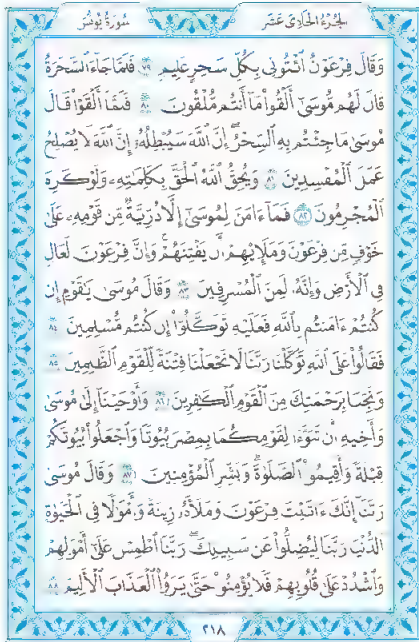 سُورَةُ يُونُسَ الجُزْءُ الحَادِى عَشَرَ
وَقَالَ فِرْعَوْنُ ٱئْتُونِى بِكُلِّ سَٰحِرٍ عَلِيمٍ ٧٩ فَلَمَّا جَآءَ ٱلسَّحَرَةُ
قَالَ لَهُم مُّوسَىٰٓ أَلْقُوا۟ مَآ أَنتُم مُّلْقُونَ ٨٠ فَلَمَّآ أَلْقَوْا۟ قَالَ
مُوسَىٰ مَا جِئْتُم بِهِ ٱلسِّحْرُ ۖ إِنَّ ٱللَّهَ سَيُبْطِلُهُۥٓ ۖ إِنَّ ٱللَّهَ لَا يُصْلِحُ
عَمَلَ ٱلْمُفْسِدِينَ ٨١ وَيُحِقُّ ٱللَّهُ ٱلْحَقَّ بِكَلِمَٰتِهِۦ وَلَوْ كَرِهَ
ٱلْمُجْرِمُونَ ٨٢ فَمَآ ءَامَنَ لِمُوسَىٰٓ إِلَّا ذُرِّيَّةٌ مِّن قَوْمِهِۦ عَلَىٰ
خَوْفٍ مِّن فِرْعَوْنَ وَمَلَإِي۟هِمْ أَن يَفْتِنَهُمْ ۚ وَإِنَّ فِرْعَوْنَ لَعَالٍ
فِى ٱلْأَرْضِ وَإِنَّهُۥ لَمِنَ ٱلْمُسْرِفِينَ ٨٣ وَقَالَ مُوسَىٰ يَٰقَوْمِ إِن
كُنتُمْ ءَامَنتُم بِٱللَّهِ فَعَلَيْهِ تَوَكَّلُوٓا۟ إِن كُنتُم مُّسْلِمِينَ ٨٤
فَقَالُوا۟ عَلَى ٱللَّهِ تَوَكَّلْنَا رَبَّنَا لَا تَجْعَلْنَا فِتْنَةً لِّلْقَوْمِ ٱلظَّٰلِمِينَ ٨٥
وَنَجِّنَا بِرَحْمَتِكَ مِنَ ٱلْقَوْمِ ٱلْكَٰفِرِينَ ٨٦ وَأَوْحَيْنَآ إِلَىٰ مُوسَىٰ
وَأَخِيهِ أَن تَبَوَّءَا لِقَوْمِكُمَا بِمِصْرَ بُيُوتًا وَٱجْعَلُوا۟ بُيُوتَكُمْ
قِبْلَةً وَأَقِيمُوا۟ ٱلصَّلَوٰةَ ۗ وَبَشِّرِ ٱلْمُؤْمِنِينَ ٨٧ وَقَالَ مُوسَىٰ
رَبَّنَآ إِنَّكَ ءَاتَيْتَ فِرْعَوْنَ وَمَلَأَهُۥ زِينَةً وَأَمْوَٰلًا فِى ٱلْحَيَوٰةِ
ٱلدُّنْيَا رَبَّنَا لِيُضِلُّوا۟ عَن سَبِيلِكَ ۖ رَبَّنَا ٱطْمِسْ عَلَىٰٓ أَمْوَٰلِهِمْ
وَٱشْدُدْ عَلَىٰ قُلُوبِهِمْ فَلَا يُؤْمِنُوا۟ حَتَّىٰ يَرَوُا۟ ٱلْعَذَابَ ٱلْأَلِيمَ ٨٨
٢١٨